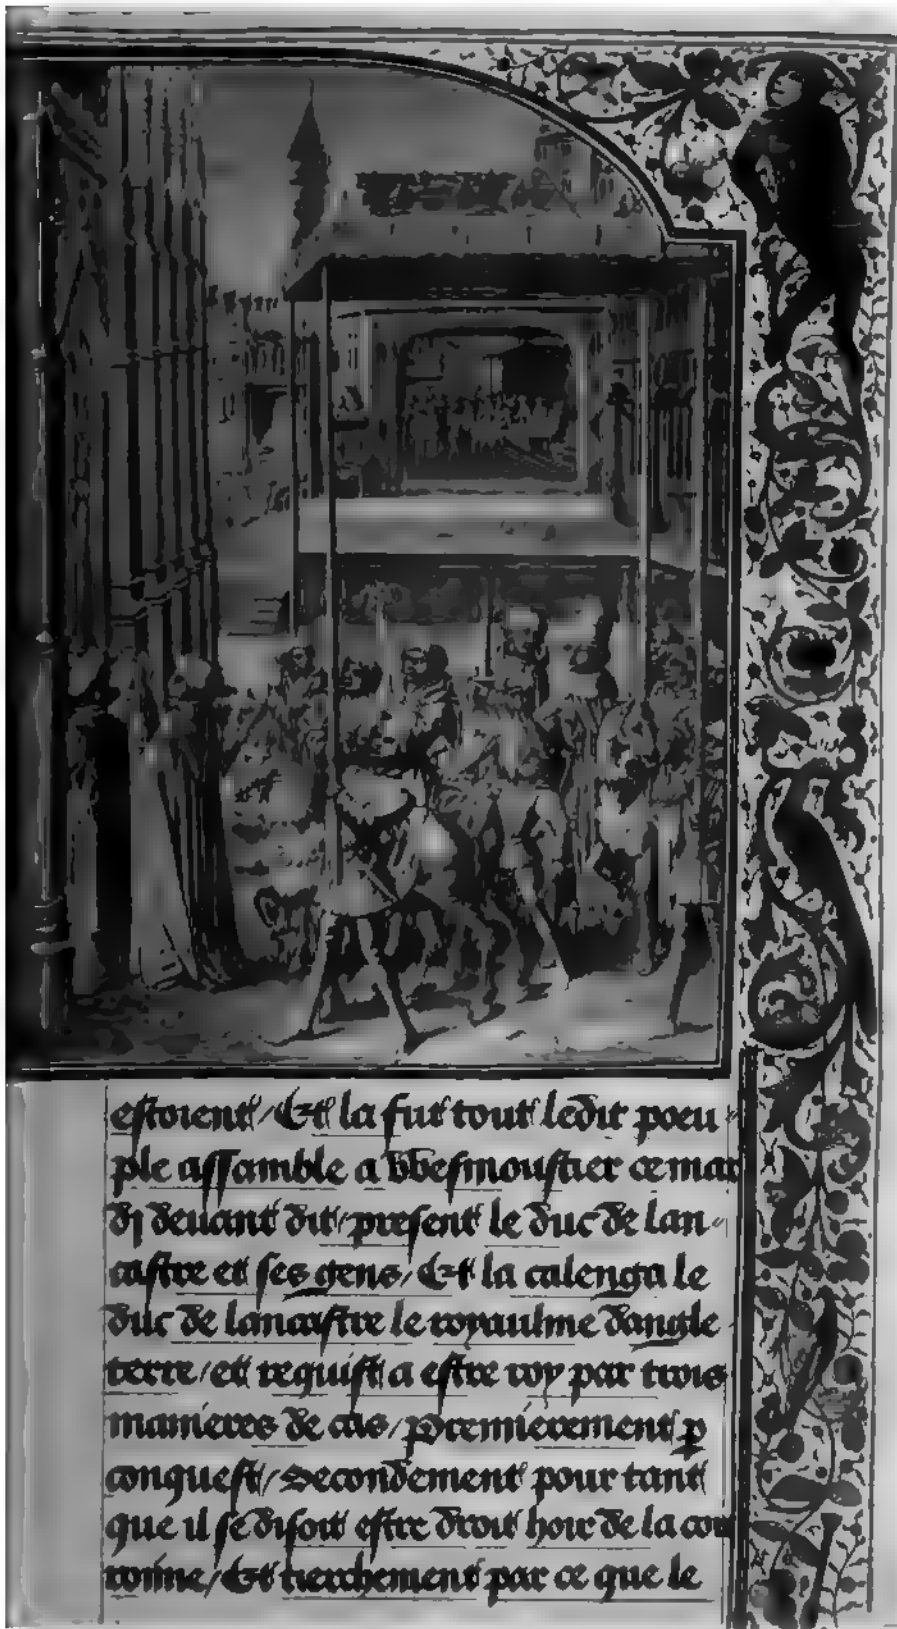 estoient / Et la fut tout ledit poeu-
ple assamble a vvesmoustier ce mar
dj deuant dit / present le duc de lan-
castre et ses gens / Et la calenga le
duc de lancastre le royaulme dangle
terre / et requist a estre roy par trois
manieres de cas / Premierement p
conquest / Secondement pour tant
que il se disoit estre droit hoir de la cou
ronne / Et tierchement par ce que le